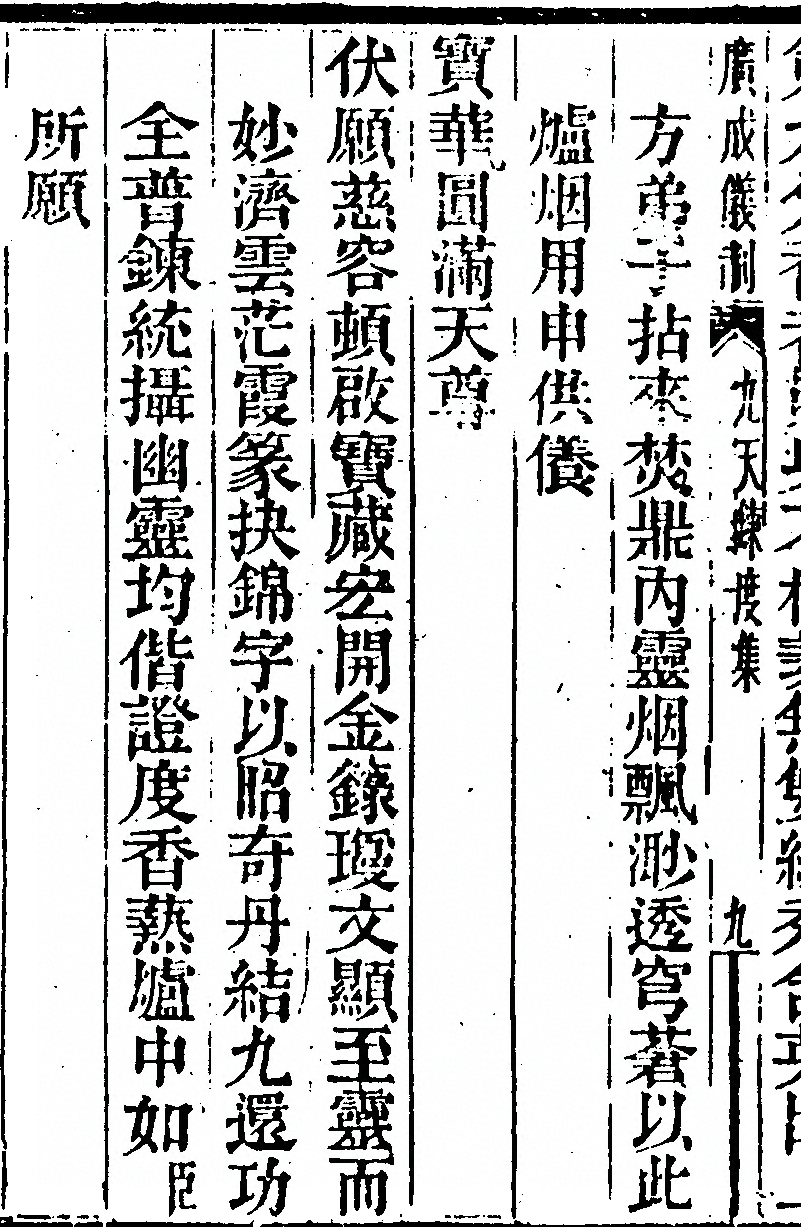 廣成儀制 九天鍊度集 九
方弟子拈來焚鼎內靈烟飄渺透穹蒼以此
爐烟用申供養
寶華圓滿天尊
伏願慈容頓啟寶藏宏開金籙瓊文顯至靈而
妙濟雲芒霞篆抉錦字以昭奇丹結九還功
全普鍊統攝幽靈均偕證度香爇爐中如臣
所願